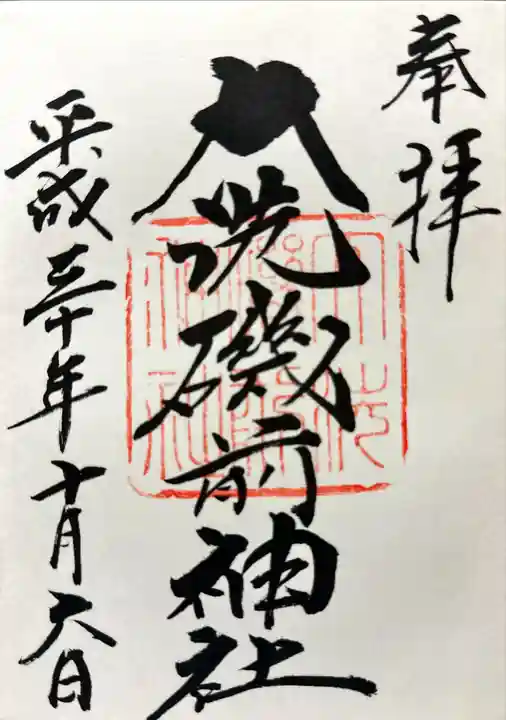 奉拝
大洗磯前神社
平成三十年十月六日